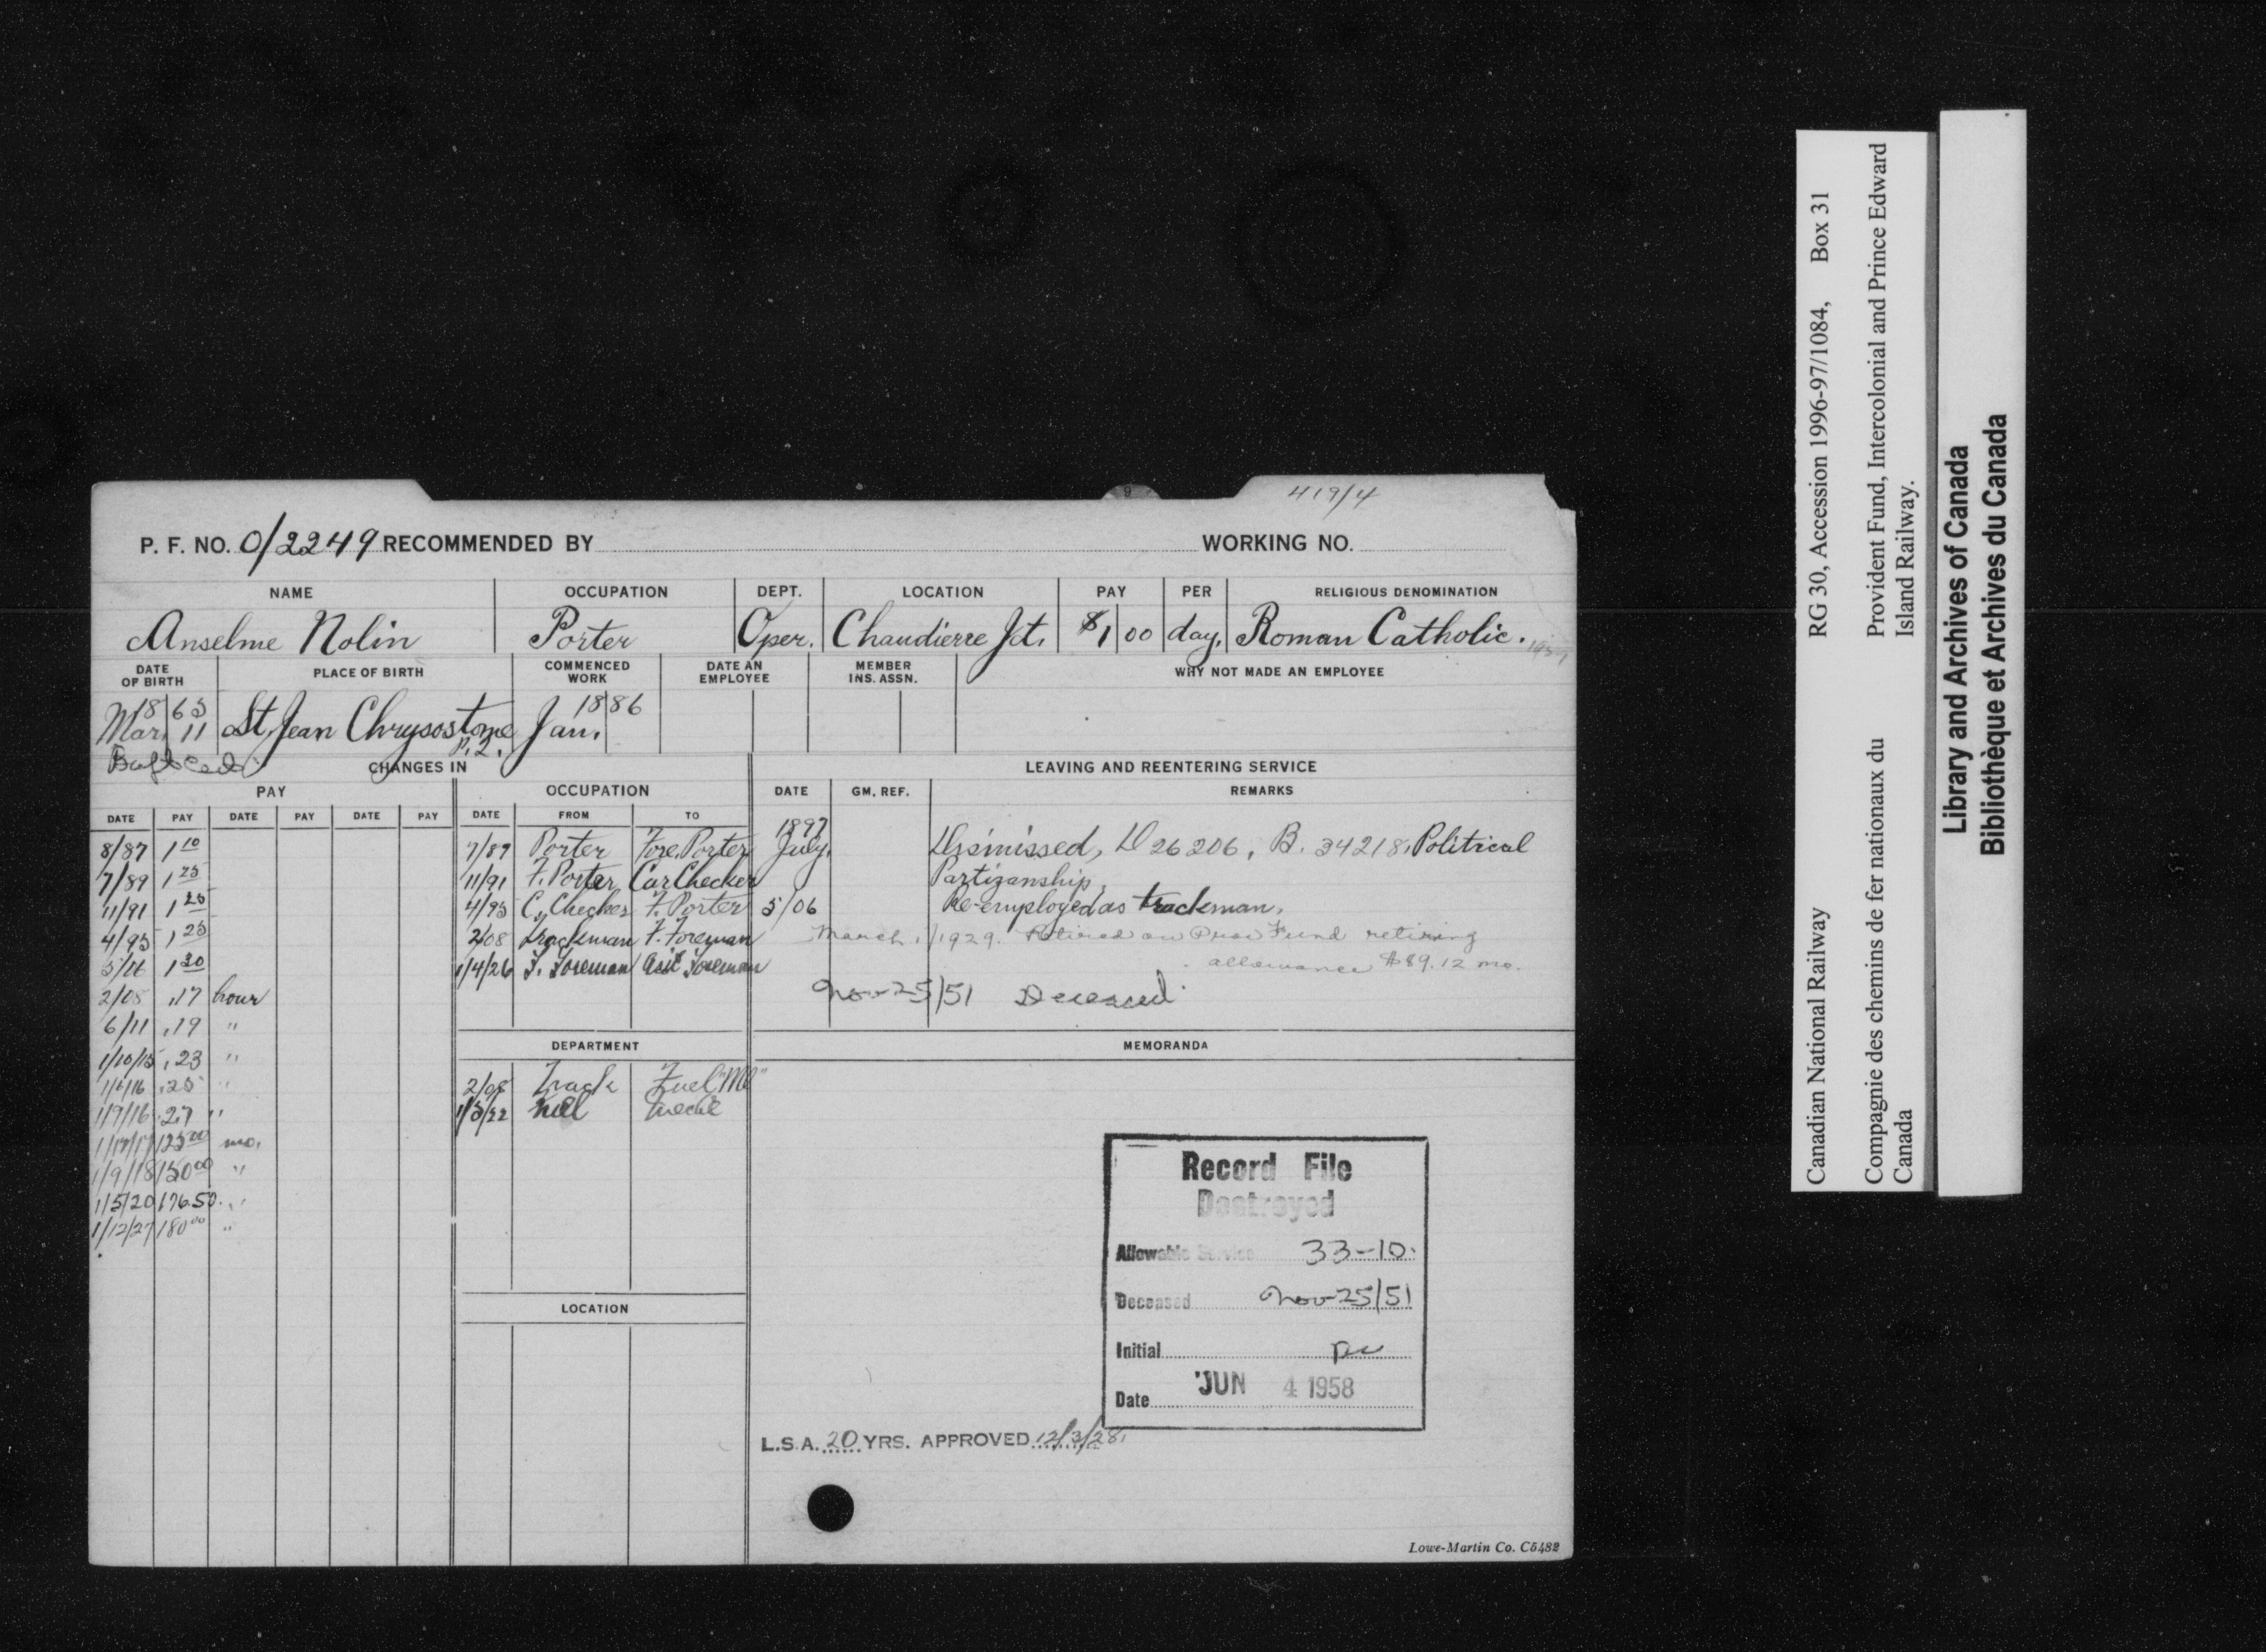 419/4
P. F. NO. 0/2249 RECOMMENDED BY WORKING NO.
NAME OCCUPATION DEPT. LOCATION PAY PER RELIGIOUS DENOMINATION
Anselme Nolin Porter Oper. Chaudierre Jct. $1 00 day. Roman Catholic.
DATE OF BIRTH PLACE OF BIRTH COMMENCED WORK DATE AN EMPLOYEE MEMBER INS. ASSN. WHY NOT MADE AN EMPLOYEE
1865 1886
Mar. 11 St. Jean Chrysostome Jan.
P.Q.
CHANGES IN LEAVING AND REENTERING SERVICE
PAY OCCUPATION DATE GM. REF. REMARKS
DATE PAY DATE PAY DATE PAY DATE FROM TO
8/87 1 10
7/89 1 25
11/91 1 25
4/95 1 25
5/06 1 30
2/08 .17 hour
6/11 .19 "
1/10/15 .23 "
1/1/16 .25 "
1/9/16 .27 "
125 00 mo.
1/9/18 150 00 "
1/5/20 176.50 "
1/12/27 180 00 "
7/89 Porter Fore. Porter
11/91 F. Porter Car Checker
4/95 C. Checker F. Porter
2/08 Trackman F. Foreman
1/4/26 F. Foreman Asst Foreman
DEPARTMENT
2/08 Track Fuel "Ml"
1/3/22 Fuel
LOCATION
1897
July. Dismissed, D 26206, B. 34218. Political
Partizanship.
5/06 Re-employed as trackman.
March 1/1929. Retired on Prov Fund retiring
allowance $89.12 mo.
Nov-25/51 Deceased
MEMORANDA
Record File
Destroyed
Allowable Service 33-10.
Deceased Nov-25/51
Initial
Date JUN 4 1958
L.S.A. 20 YRS. APPROVED 12/3/28.
Lowe-Martin Co. C5482
Canadian National Railway RG 30, Accession 1996-97/1084, Box 31
Compagnie des chemins de fer nationaux du Provident Fund, Intercolonial and Prince Edward
Canada Island Railway.
Library and Archives of Canada
Bibliothèque et Archives du Canada